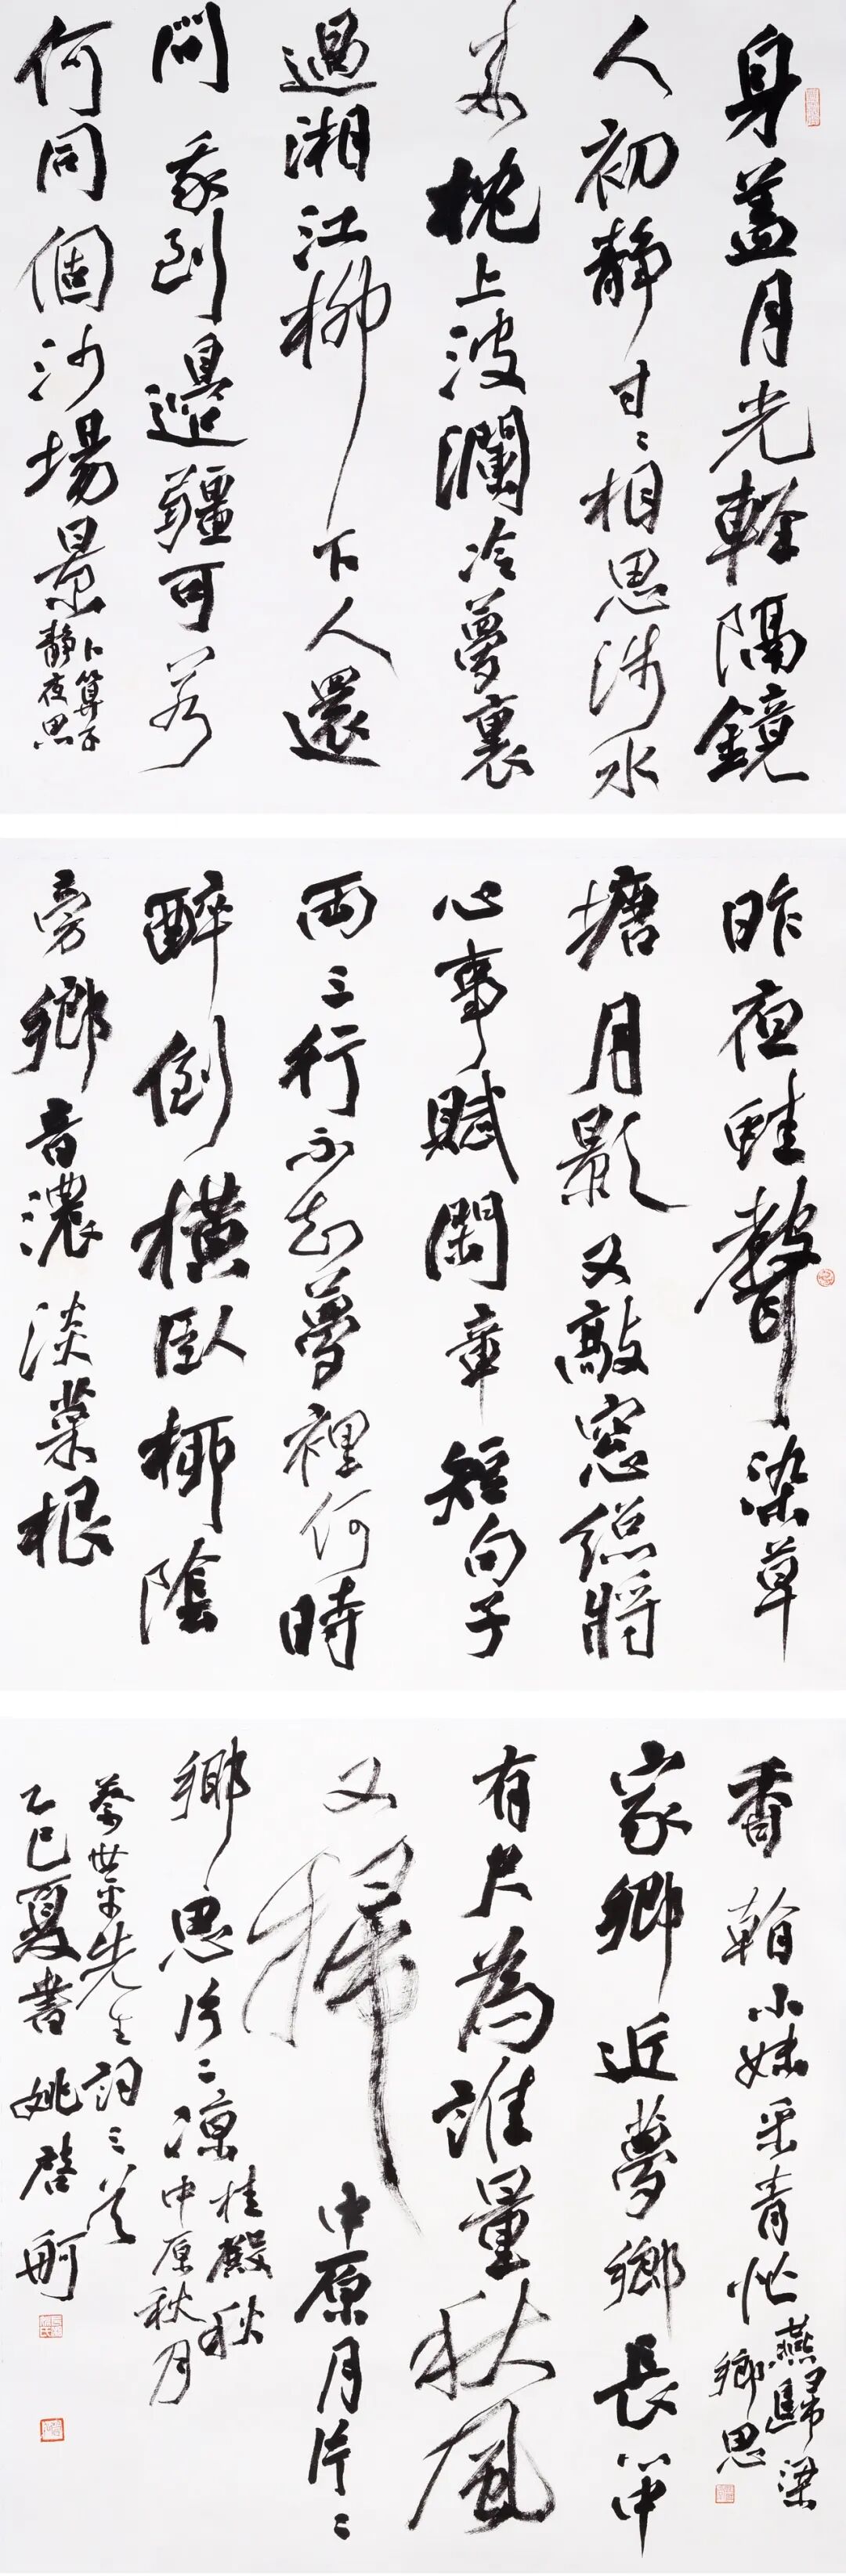 身蓋月光輕隔鏡
人初靜寸〻相思涉水
來枕上波瀾冷夢裏
過湘江柳下人還
問我到邊疆可若
何同個沙場景
卜算子
靜夜思
昨夜蛙聲染草
塘月影又敲窓總將
心事賦閑章短句子
兩三行不知夢裡何時
醉倒橫臥柳陰
旁鄉音濃淡菜根
香小妹采青忙
燕歸梁
鄉思
家鄉近夢鄉長
有尺為誰量秋風
又掃中原月片〻
鄉思片〻涼
桂殿秋
中原秋月
蔡世平先生詞三首
乙巳夏書姚啓舸